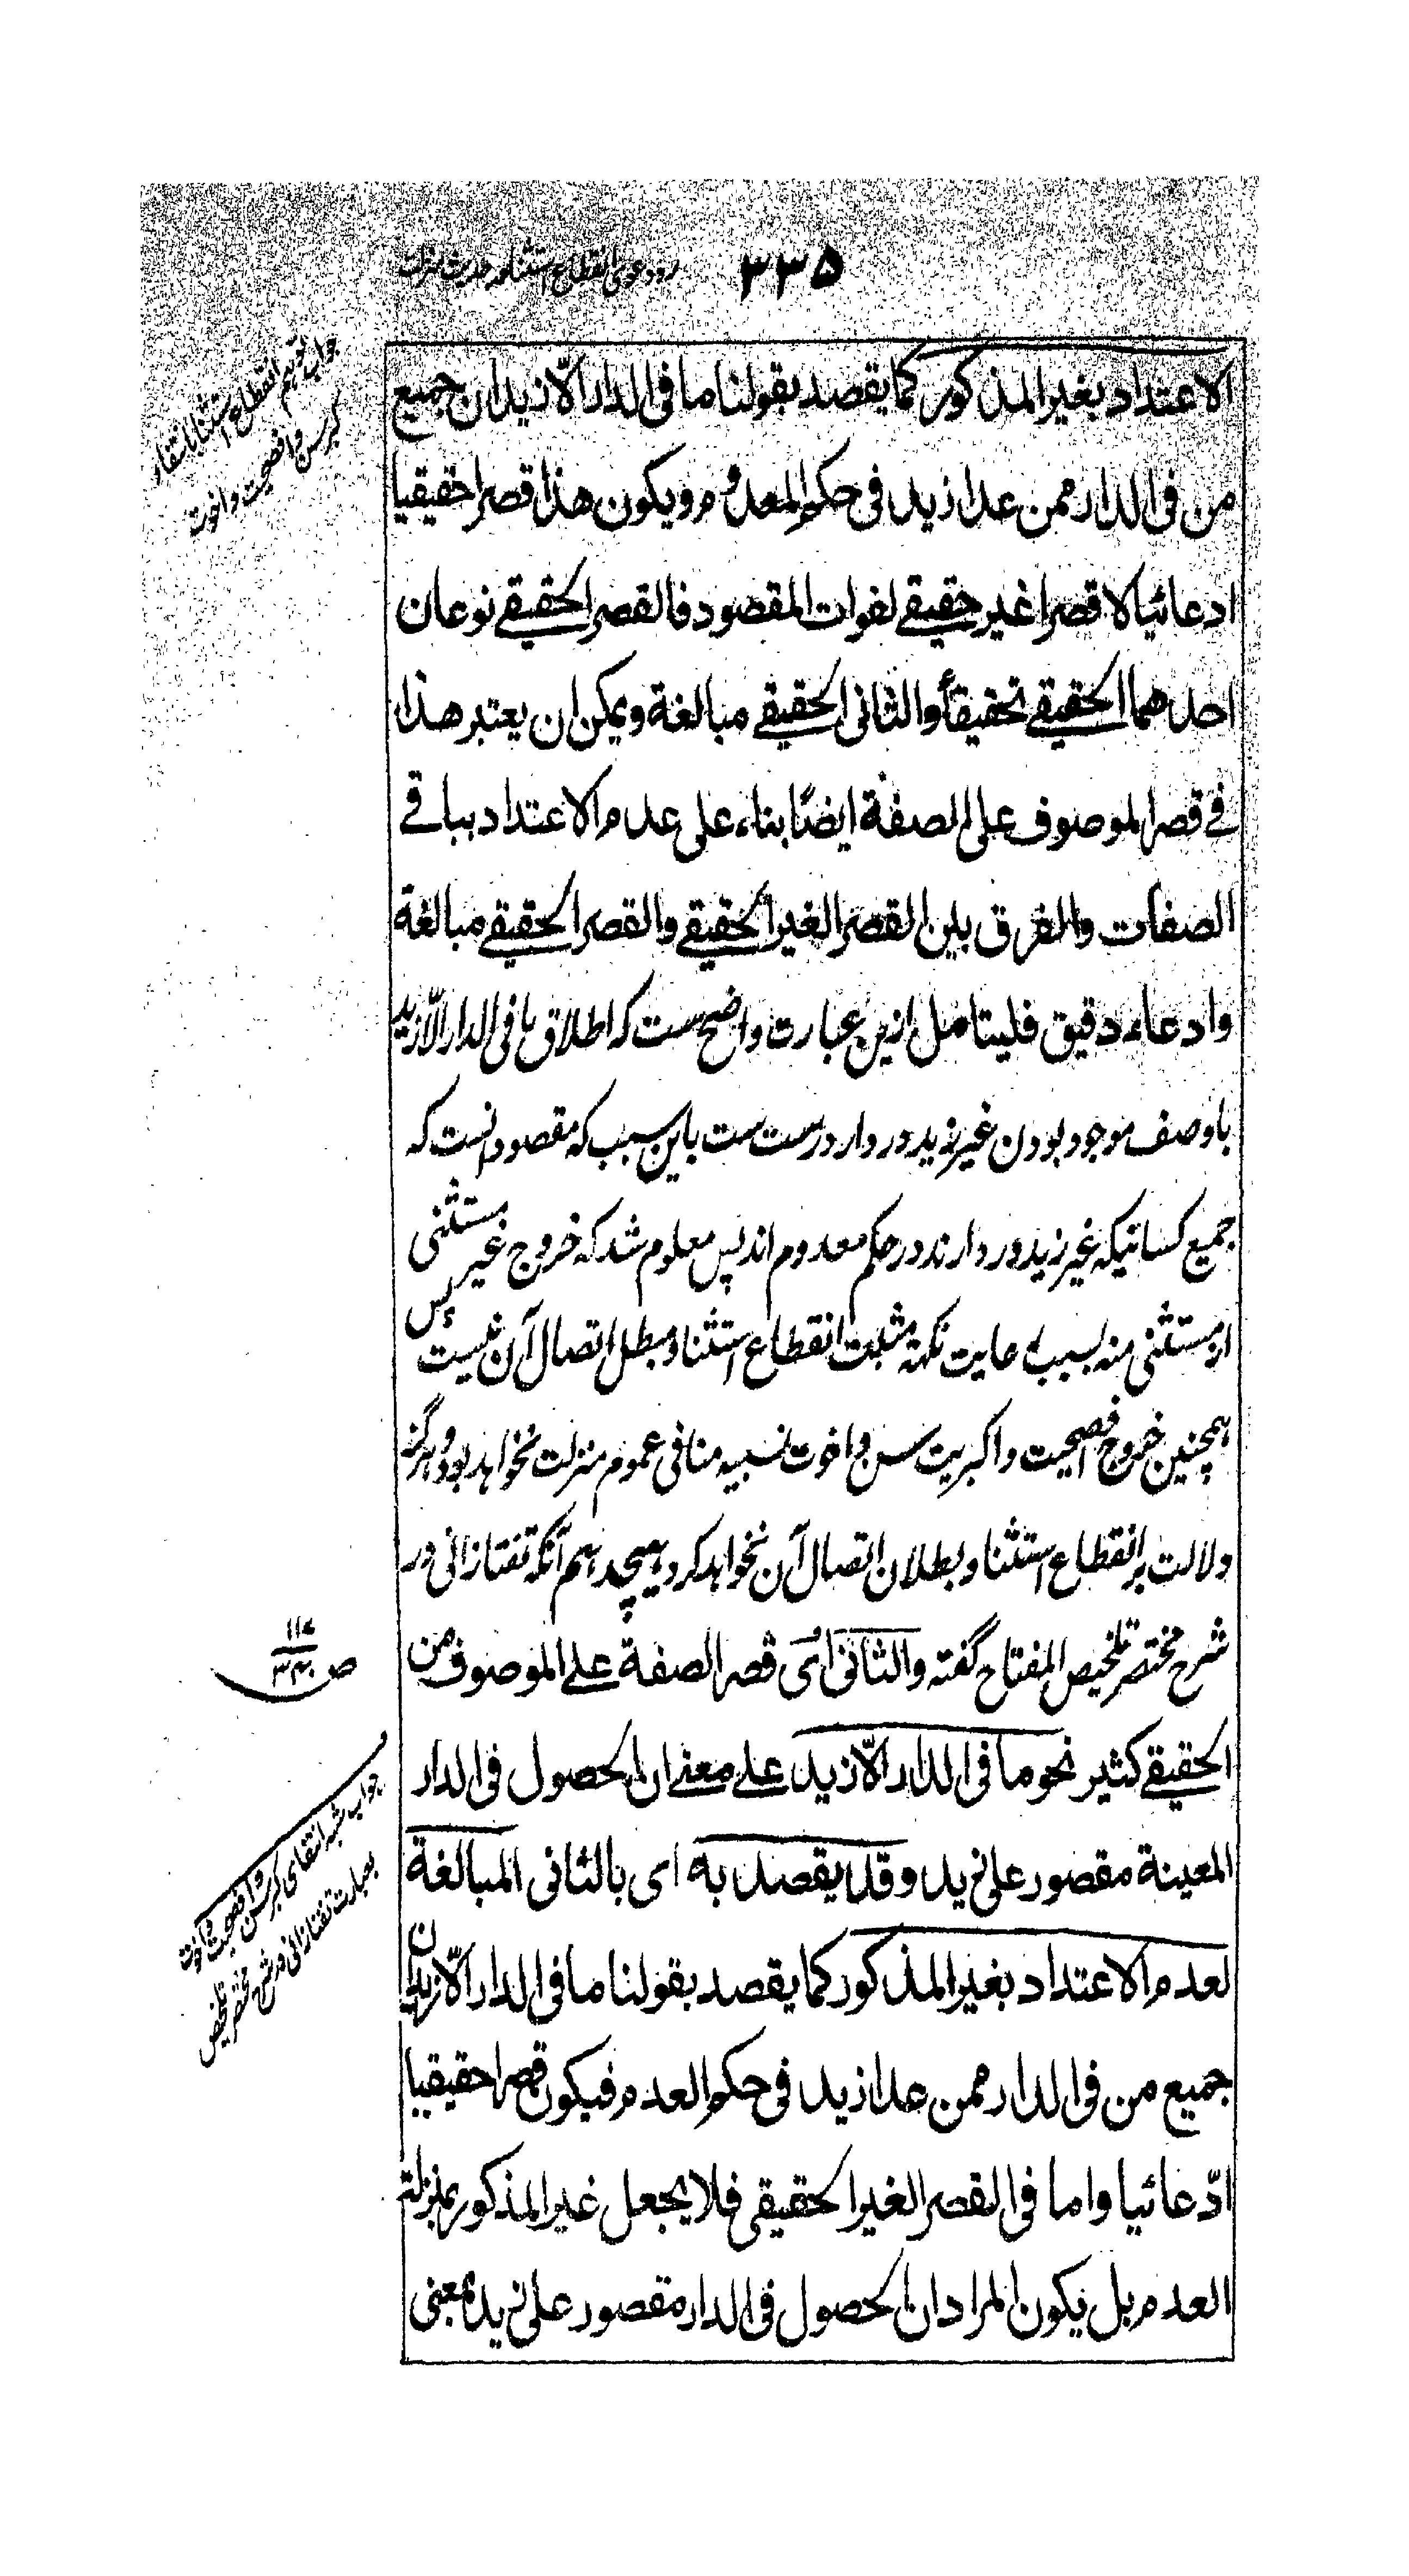 ۳۳۵
رد دعوی انقطاع استثناء حدیث منزلت
جواب توهم انقطاع استثنا بانتفاء
کبر سن و افصحیت و اخوت
الاعتداد بغير المذكور كما يقصد بقولنا ما فى الدار الّا زيد ان جميع
من فى الدار ممن عدا زيد فى حكم المعدوم ويكون هذا قصرا حقيقيا
ادعائيا لا قصرا غير حقيقے لفوات المقصود فالقصر الحقيقے نوعان
احدهما الحقيقے تحقيقاً والثانى الحقيقے مبالغة ويمكن ان يعتبر هذا
فے قصر الموصوف على الصفة ايضًا بناء على عدم الاعتداد بباقے
الصفات والفرق بين القصر الغير الحقيقے والقصر الحقيقے مبالغة
وادعاء دقيق فليتامل ازین عبارت واضح ست که اطلاق ما فى الدار الّا زید
با وصف موجود بودن غیر زید در دار درست ست باین سبب که مقصود انست که
جمیع کسانیکه غیر زید در دارند در حکم معدوم اند پس معلوم شد که خروج غیر مستثنی
از مستثنی منه بسبب رعایت نکته مثبت انقطاع استثنا و مبطل اتصال آن نیست پس
همچنین خروج افصحیت و اکبریت سن و اخوت نسبیه منافی عموم منزلت نخواهد بود و هرگز
دلالت بر انقطاع استثنا و بطلان اتصال آن نخواهد کرد هیجدهم آنکه تفتازانی در
شرح مختصر تلخیص المفتاح گفته والثانى اى قصر الصفة علے الموصوف من
الحقيقے كثير نحو ما فى الدار الّا زيد علے معنے ان الحصول فى الدار
المعينة مقصور على زيد وقد يقصد به اى بالثانى المبالغة
لعدم الاعتداد بغير المذكور كما يقصد بقولنا ما فى الدار الّا زيد ان
جميع من فى الدار ممن عدا زيد فى حكم العدم فيكون قصرا حقيقيا
ادّعائيا واما فى القصر الغير الحقيقى فلا يجعل غير المذكور بمنزلة
العدم بل يكون المراد ان الحصول فى الدار مقصور على زيد بمعنى
ص
جواب شبه انتفای کبر سن و افصحیت و اخوت
بعبارت تفتازانی در شرح مختصر تلخیص